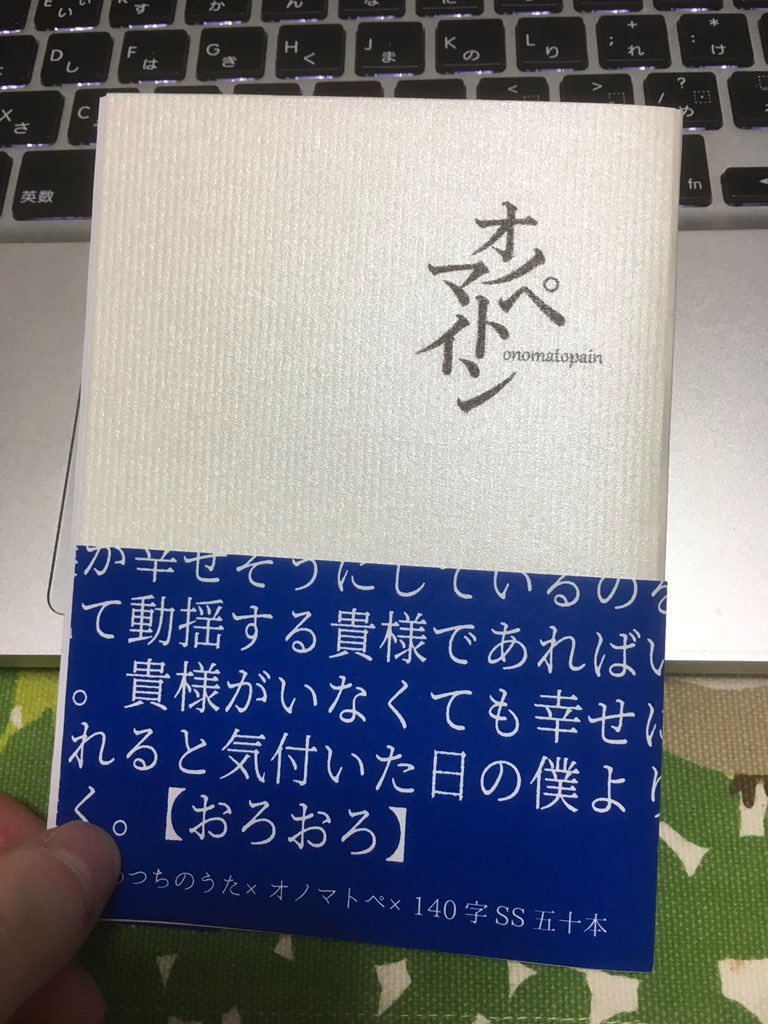 D し F は G き H く J ま K の L り + ; れ * : け
X さ C < > ? / め
英数 fn
オノマトペイン
onomatopain
が幸せそうにしているのを
て動揺する貴様であればい
。貴様がいなくても幸せに
れると気付いた日の僕より
く。【おろおろ】
つちのうた× オノマトペ× 140字SS五十本